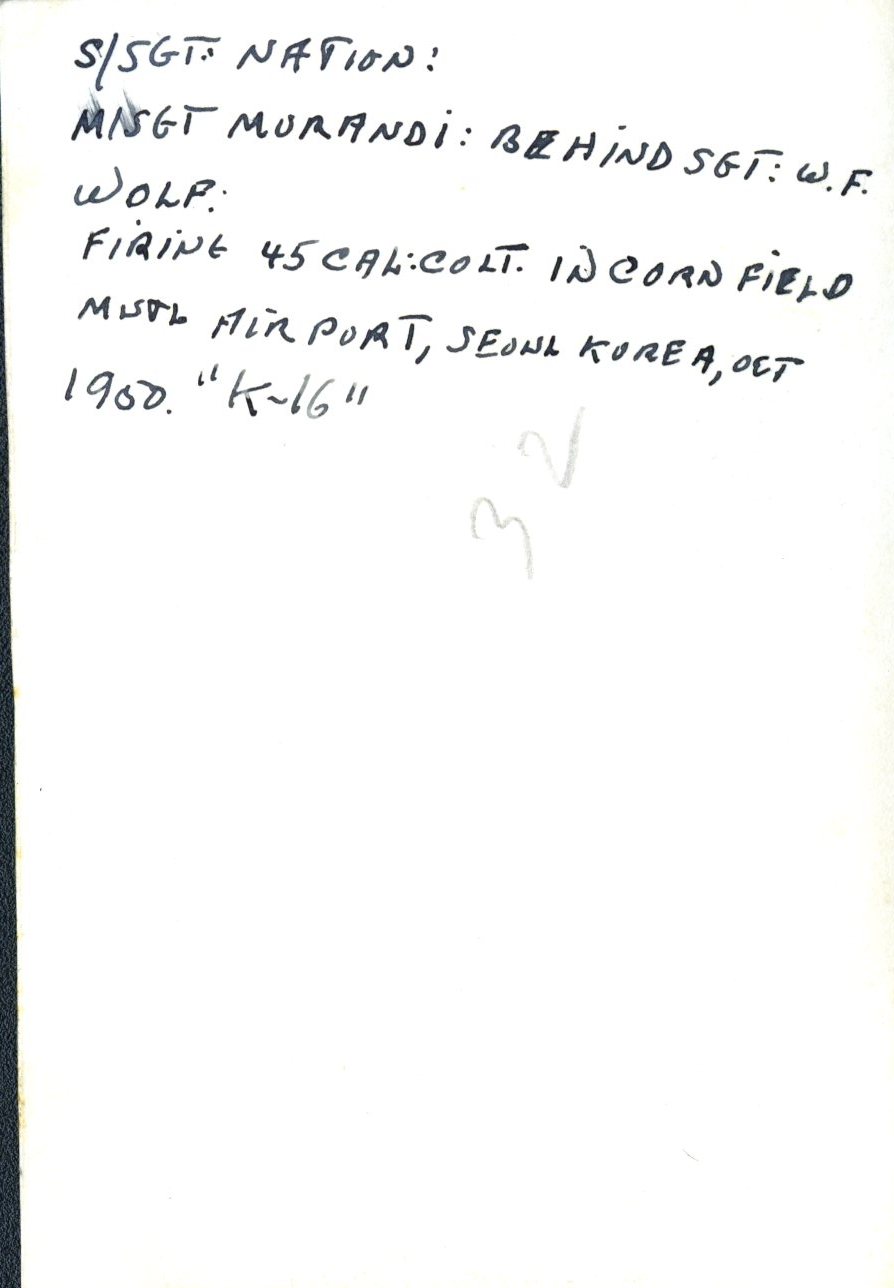 S/SGT: NATION:
M/SGT MORANDI: BEHIND SGT: W.F.
WOLF:
FIRING 45 CAL:COLT. IN CORN FIELD
AIRPORT, SEOUL KOREA, OCT
1950. "K-16"